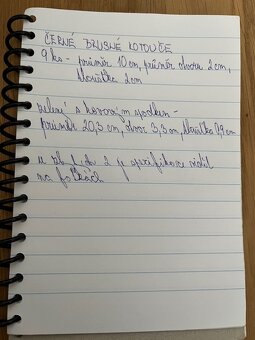 ČERNÉ BRUSNÉ KOTOUČE
9 ks - průměr 10 cm, průměr otvoru 2 cm,
tloušťka 2 cm
zelený s kovovým spodkem -
průměr 20,3 cm, otvor 3,3 cm, tloušťka 0,9 cm
u zb. jde specifikace vidět
na fotkách